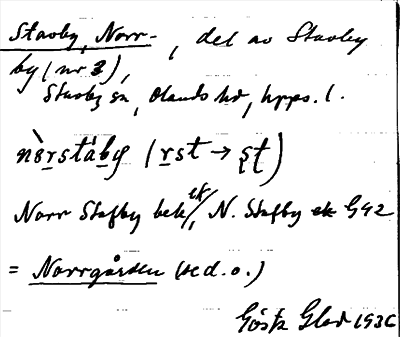 Stavby, Norr-, del av Stavby
by (nr 3),
Stavby sn, Olands hd, Upps. l.
nòrstáby (rst → şt)
Norr Stafby bek, ek N. Stafby ek G42
= Norrgården (se d. o.)
Gösta Glad 1936